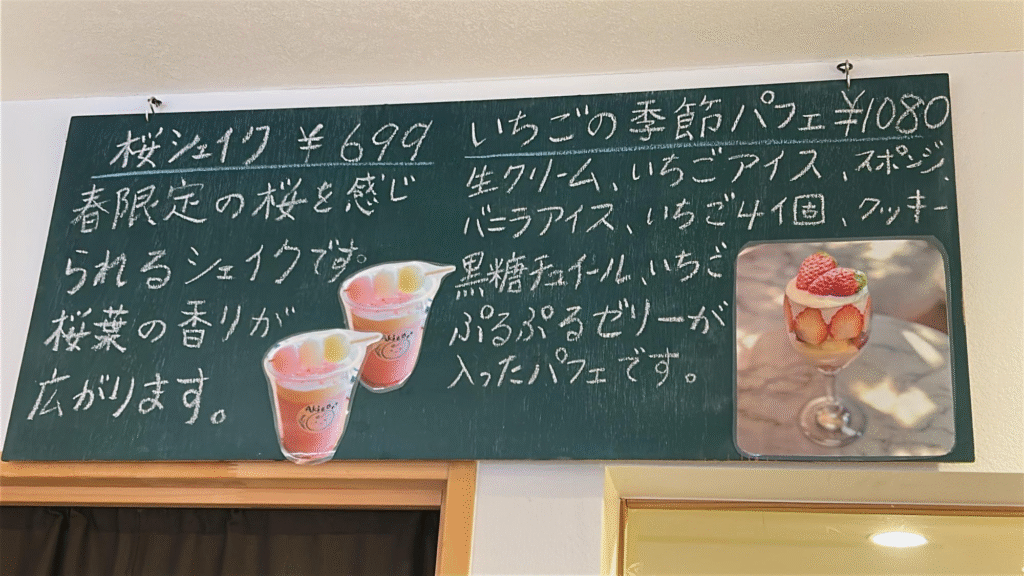 桜シェイク ¥699
春限定の桜を感じ
られるシェイクです。
桜葉の香りが
広がります。
いちごの季節パフェ ¥1080
生クリーム、いちごアイス、スポンジ、
バニラアイス、いちご4個、クッキー
黒糖チュイール、いちご
ぷるぷるゼリーが
入ったパフェです。